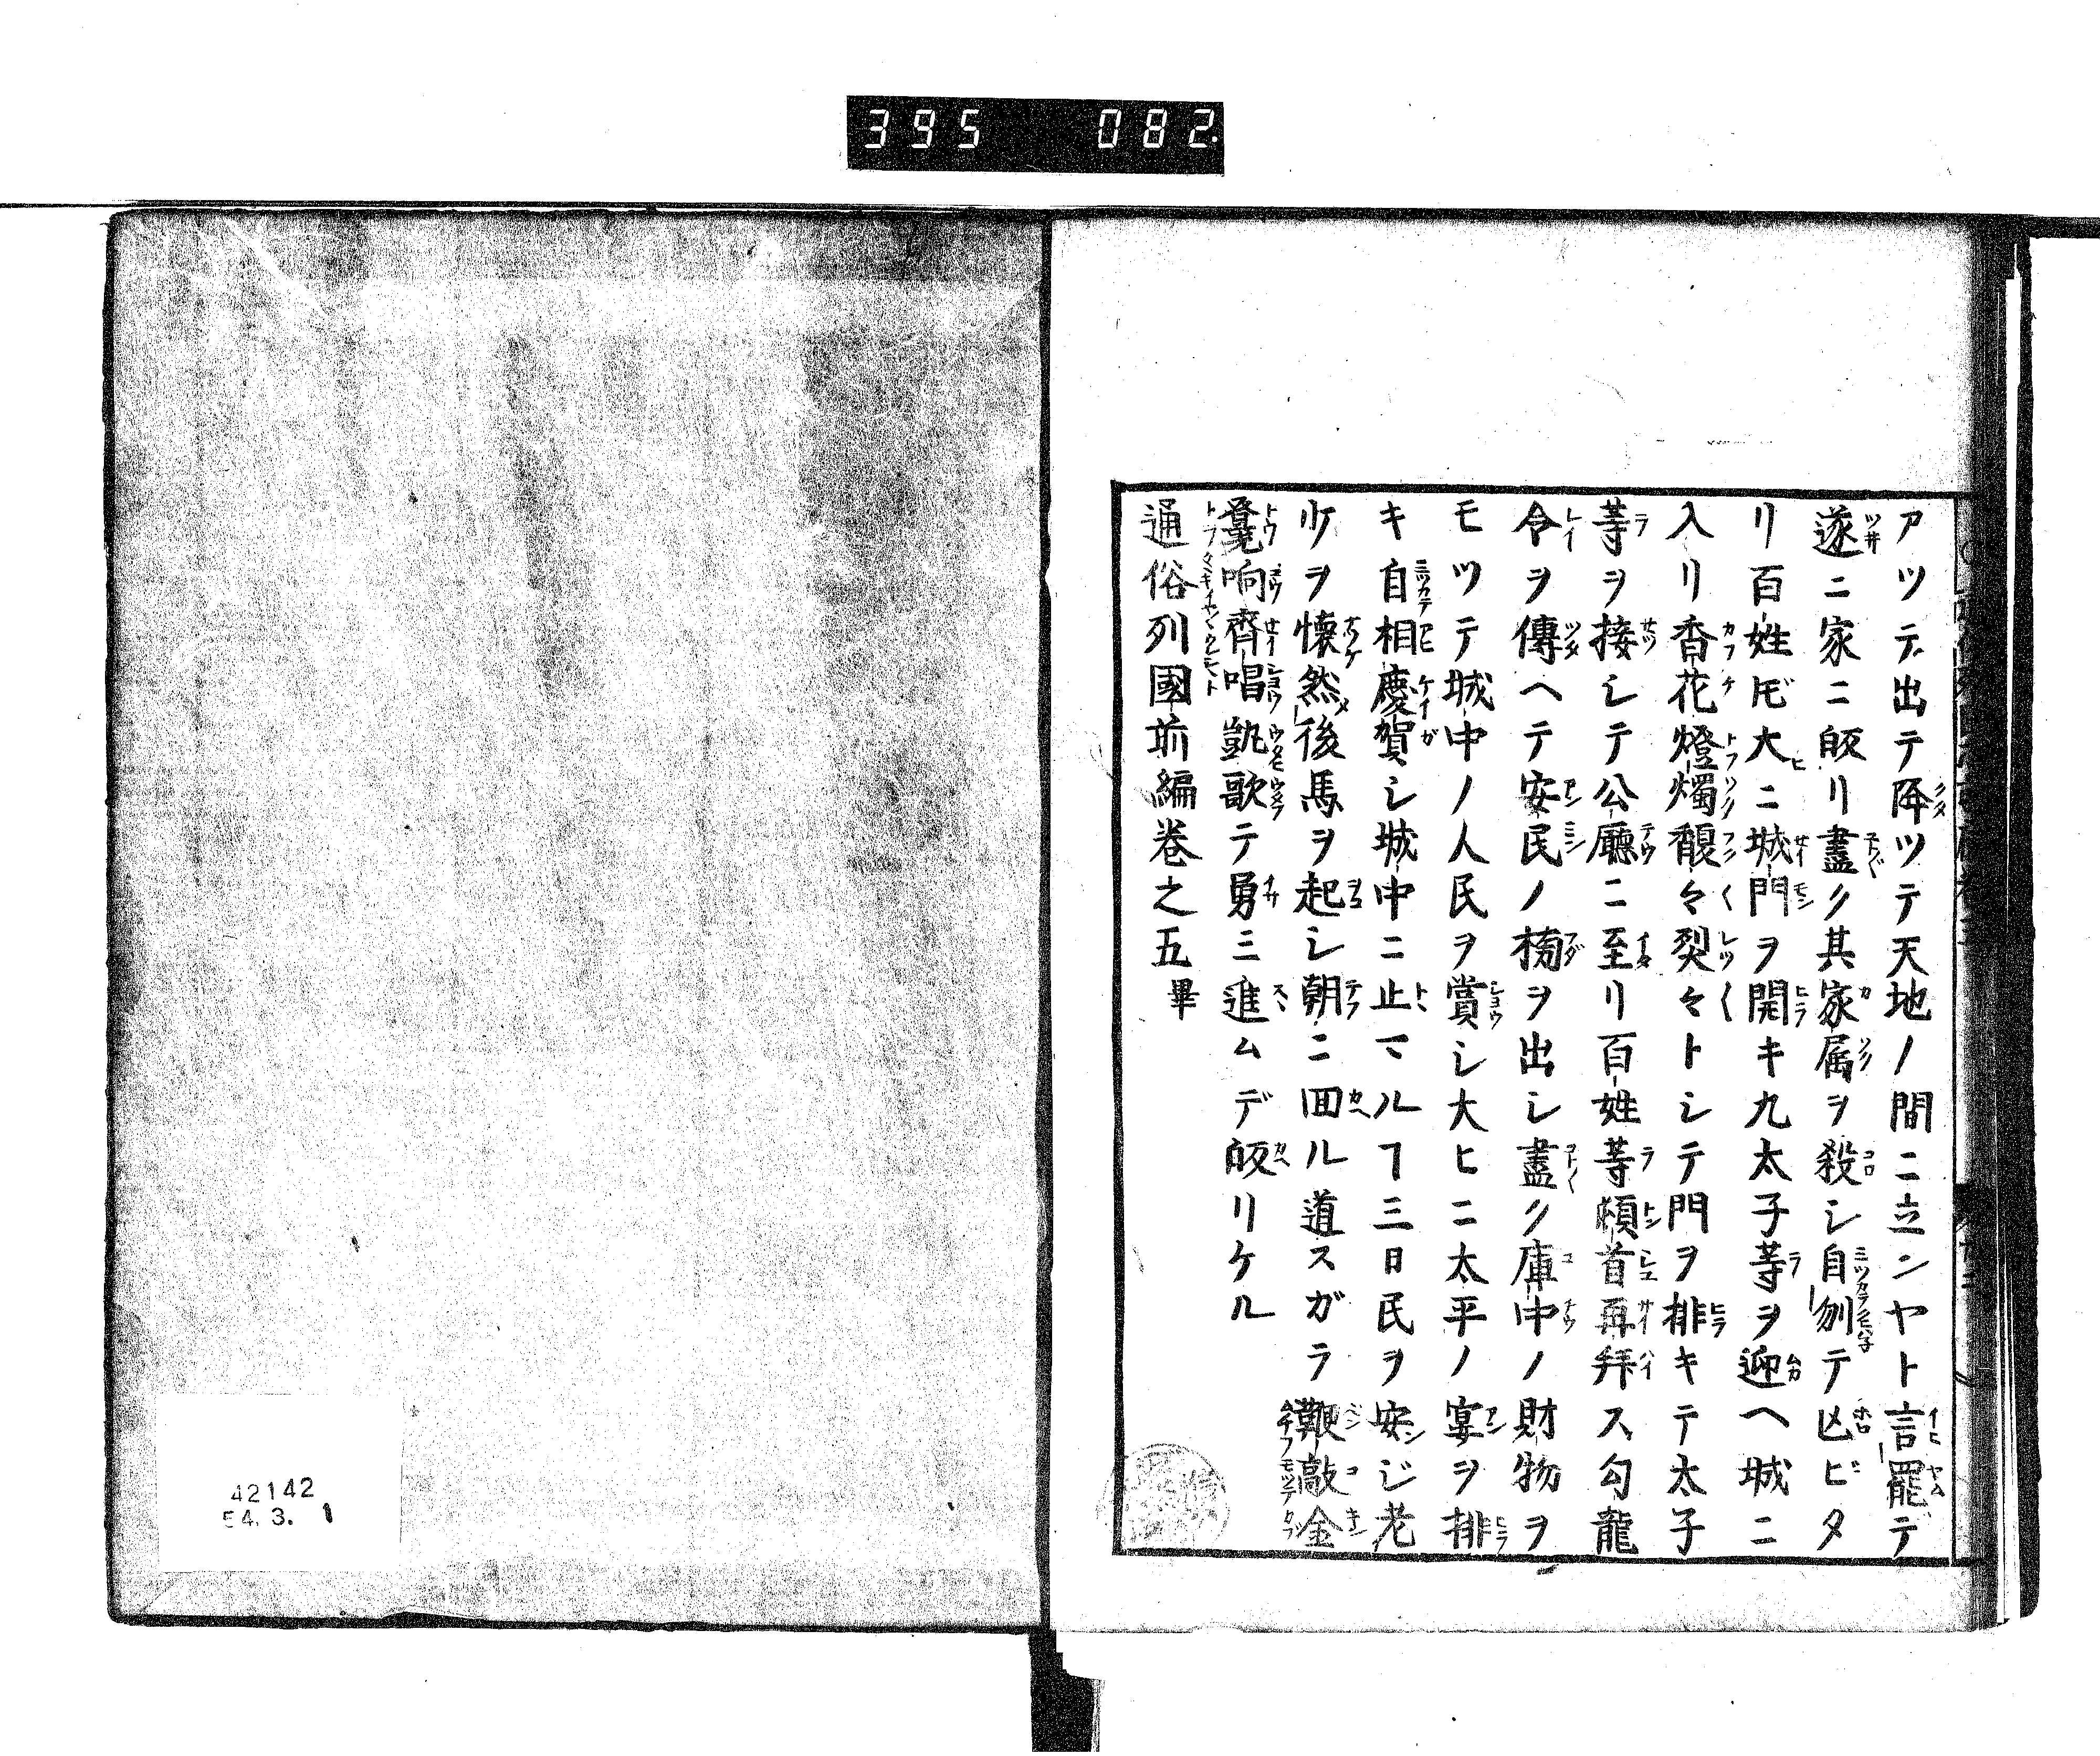 395 082
アツテ出テ降ツテ天地ノ間ニ立ンヤト言罷テ
遂ニ家ニ皈リ盡ク其家属ヲ殺シ自刎テ亡ビタ
リ百姓𪜈大ニ城門ヲ開キ九太子等ヲ迎ヘ城ニ
入リ香花燈燭馥々裂々トシテ門ヲ排キテ太子
等ヲ接シテ公廳ニ至リ百姓等頓首再拜ス勾龍
令ヲ傳ヘテ安民ノ榜ヲ出シ盡ク庫中ノ財物ヲ
モツテ城中ノ人民ヲ賞シ大ヒニ太平ノ宴ヲ排
キ自相慶賀シ城中ニ止マルヿ三日民ヲ安ジ老
少ヲ懐然後馬ヲ起シ朝ニ囬ル道スガラ鞭敲金
鐙响齊唱凱歌テ勇三進ムデ皈リケル
通俗列國前編巻之五畢
42142
54.3.1